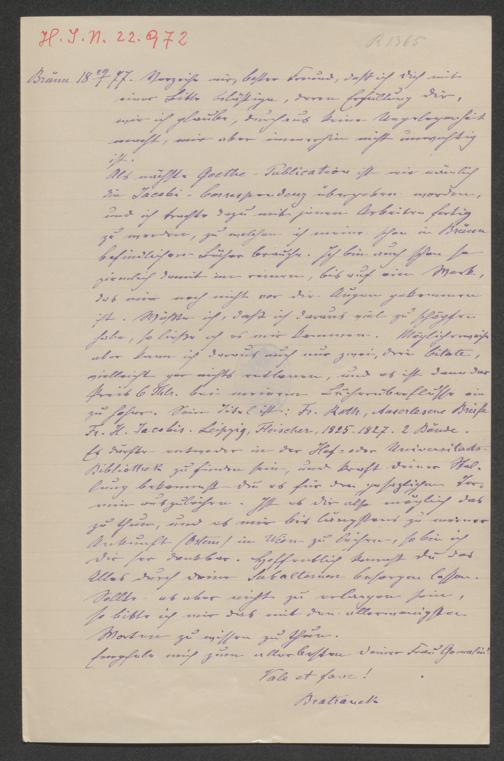 H. I. N. 22.972
R 1365
Brünn 18 29/3 77. Verzeihe mir, bester Freund, daß ich Dich mit
einer Bitte belästige, deren Erfüllung Dir,
wie ich glaube, durchaus keine Ungelegenheit
macht, mir aber immerhin nicht unwichtig
ist.
Als nächste Goethe-Publication ist mir nämlich
die Jacobi-Correspondenz übergeben worden,
und ich trachte dazu mit jenen Arbeiten fertig
zu werden, zu welchen ich meine schon in Brünn
befindlichen Bücher brauche. Ich bin auch schon so
ziemlich damit im reinen, bis auf ein Werk,
das mir noch nicht vor die Augen gekommen
ist. Wüßte ich, daß ich daraus viel zu schöpfen
habe, so ließe ich es mir kommen. Möglicherweise
aber kann ich daraus auch nur zwei, drei Citate,
vielleicht gar nichts entlenen, und es ist dann der
Preis 6 Thlr. bei meinem Bücherüberflusse ein
zu hoher. Sein Titel ist: Fr. Roth, Auserlesene Briefe
Fr. H. Jacobis. Leipzig, Fleischer, 1825. 1827. 2 Bände.
Es dürfte entweder in der Hof- oder Universitäts-
Bibliothek zu finden sein, und kraft deiner Stel-
lung bekommst du es für den gesezlichen Ter-
min auszuleihen. Ist es dir also möglich das
zu thun, und es mir bis längstens zu meiner
Ankunft (Ostern) in Wien zu leihen, so bin ich
dir ser dankbar. Hoffentlich kannst du das
Alles durch deine Subalternen besorgen lassen.
Sollte es aber nicht zu erlangen sein,
so bitte ich mir das mit den allerwenigsten
Worten zu wissen zu thun.
Empfehle mich zum allerbesten deiner Frau Gemalin!
Vale et fave!
Bratranek